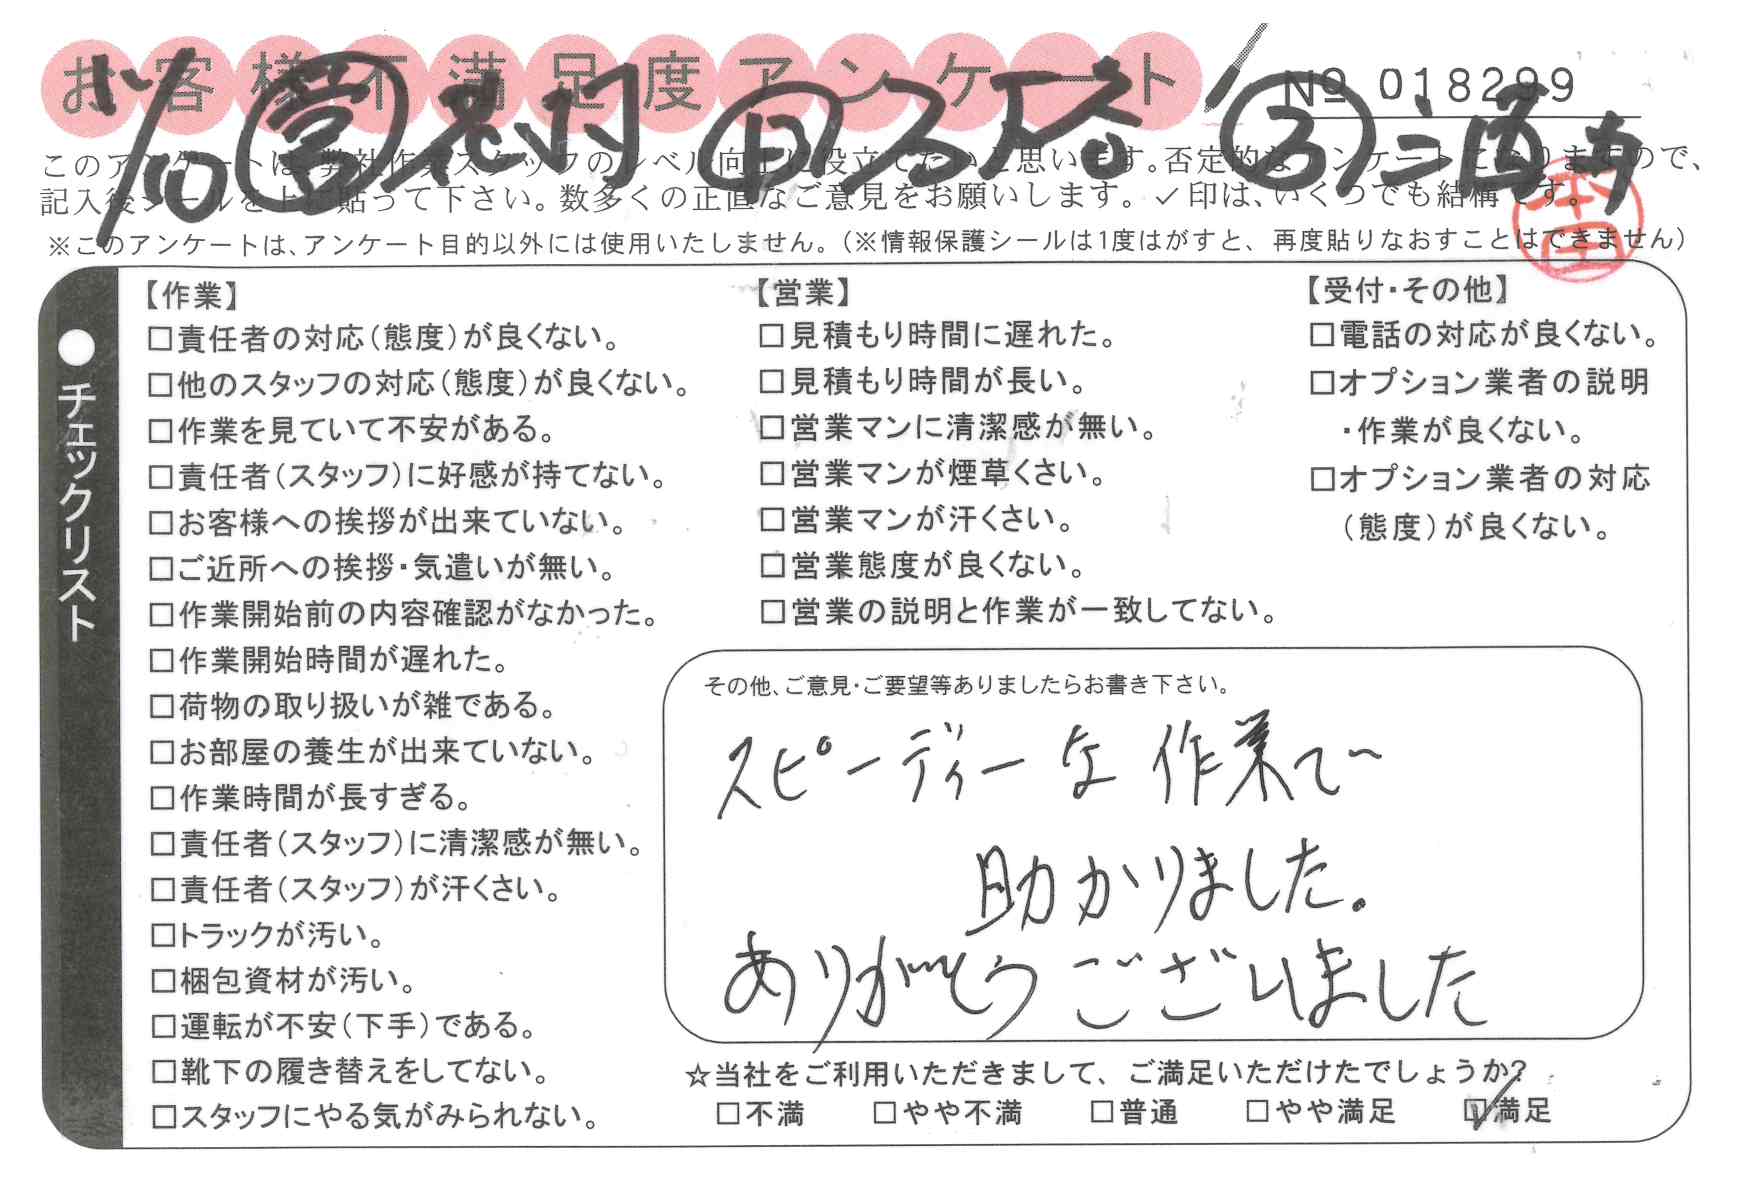 お客様不満足度アンケート
No 018299
1/10 営
このアンケートは、弊社作業スタッフのレベル向上に役立てたいと思います。否定的なアンケートになりますので、
記入後シールを上に貼って下さい。数多くの正直なご意見をお願いします。✓印は、いくつでも結構です。
※このアンケートは、アンケート目的以外には使用いたしません。（※情報保護シールは1度はがすと、再度貼りなおすことはできません）
●チェックリスト
【作業】
□責任者の対応（態度）が良くない。
□他のスタッフの対応（態度）が良くない。
□作業を見ていて不安がある。
□責任者（スタッフ）に好感が持てない。
□お客様への挨拶が出来ていない。
□ご近所への挨拶・気遣いが無い。
□作業開始前の内容確認がなかった。
□作業開始時間が遅れた。
□荷物の取り扱いが雑である。
□お部屋の養生が出来ていない。
□作業時間が長すぎる。
□責任者（スタッフ）に清潔感が無い。
□責任者（スタッフ）が汗くさい。
□トラックが汚い。
□梱包資材が汚い。
□運転が不安（下手）である。
□靴下の履き替えをしてない。
□スタッフにやる気がみられない。
【営業】
□見積もり時間に遅れた。
□見積もり時間が長い。
□営業マンに清潔感が無い。
□営業マンが煙草くさい。
□営業マンが汗くさい。
□営業態度が良くない。
□営業の説明と作業が一致してない。
【受付・その他】
□電話の対応が良くない。
□オプション業者の説明
・作業が良くない。
□オプション業者の対応
（態度）が良くない。
その他、ご意見・ご要望等ありましたらお書き下さい。
スピーディーな作業で
助かりました。
ありがとうございました
☆当社をご利用いただきまして、ご満足いただけたでしょうか?
□不満 □やや不満 □普通 □やや満足 ☑満足